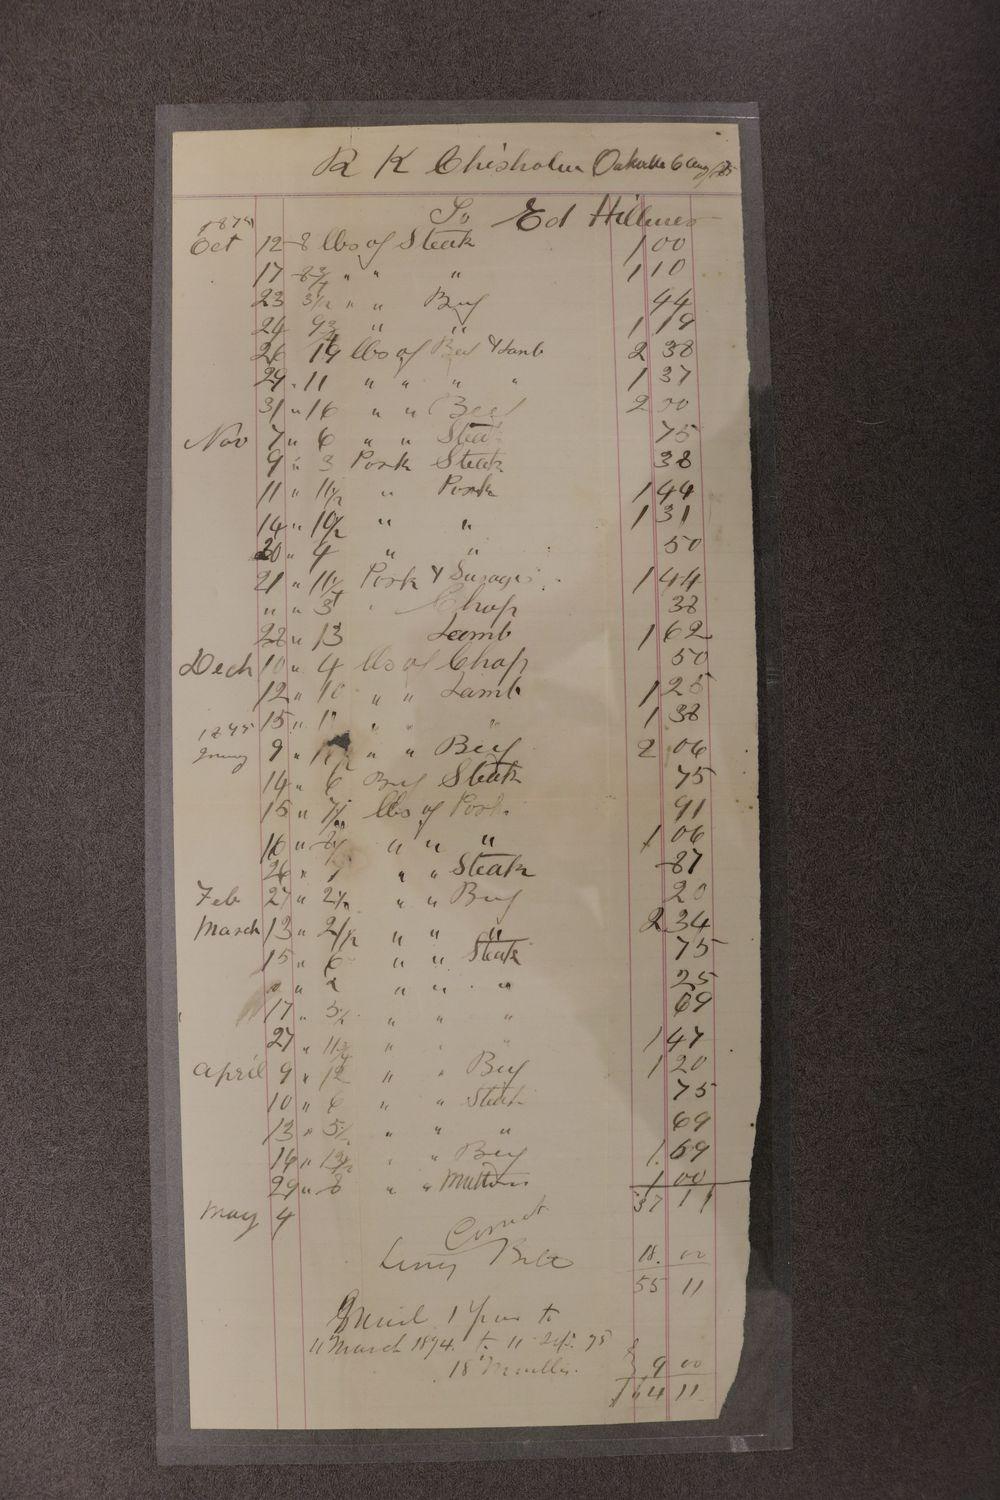 R K Chisholm Oakville 6 Aug/75
To Ed Hillmer
1874
Oct 12 8 lbs of Steak 1 00
17 8 3/4 " " " 1 10
23 3 1/2 " " Beef 44
24 9 3/4 " " 1 19
26 19 lbs of Beef & Lamb 2 38
29 " 11 " " " " 1 37
31 " 16 " " Beef 2 00
Nov 7 " 6 " " Steak 75
9 " 3 Pork Steak 38
11 " 11 1/2 " Pork 1 44
14 " 10 1/2 " " 1 31
20 " 4 " " 50
21 " 11 1/2 Pork & Sausages 1 44
" " 3 " Chop 38
28 " 13 Lamb 1 62
Dech 10 " 4 lbs of Chop 50
12 " 10 " " Lamb 1 25
15 " 11 " " " 1 38
1875
9 " " " Beef 2 06
14 " 6 Beef Steak 75
15 " 7 lbs of Pork 91
16 " 8 1/2 " " " 1 06
26 " 7 " " Steak 87
Feb 27 " " " Beef 20
March 13 " " " " 2 34
15 " 6 " " Steak 75
" " 2 " " " 25
17 " 5 1/2 " " " 69
27 " 11 3/4 " " " 1 47
April 9 " 12 " " Beef 1 20
10 " 6 " " Steak 75
13 " 5 1/2 " " " 69
16 " 13 1/2 " " Beef 1 69
29 " 8 " " Mutton 1 00
May 4 37 11
Correct
18 00
55 11
1 Year to
11 March 1874 to 11 75
18 Months 9 00
64 11